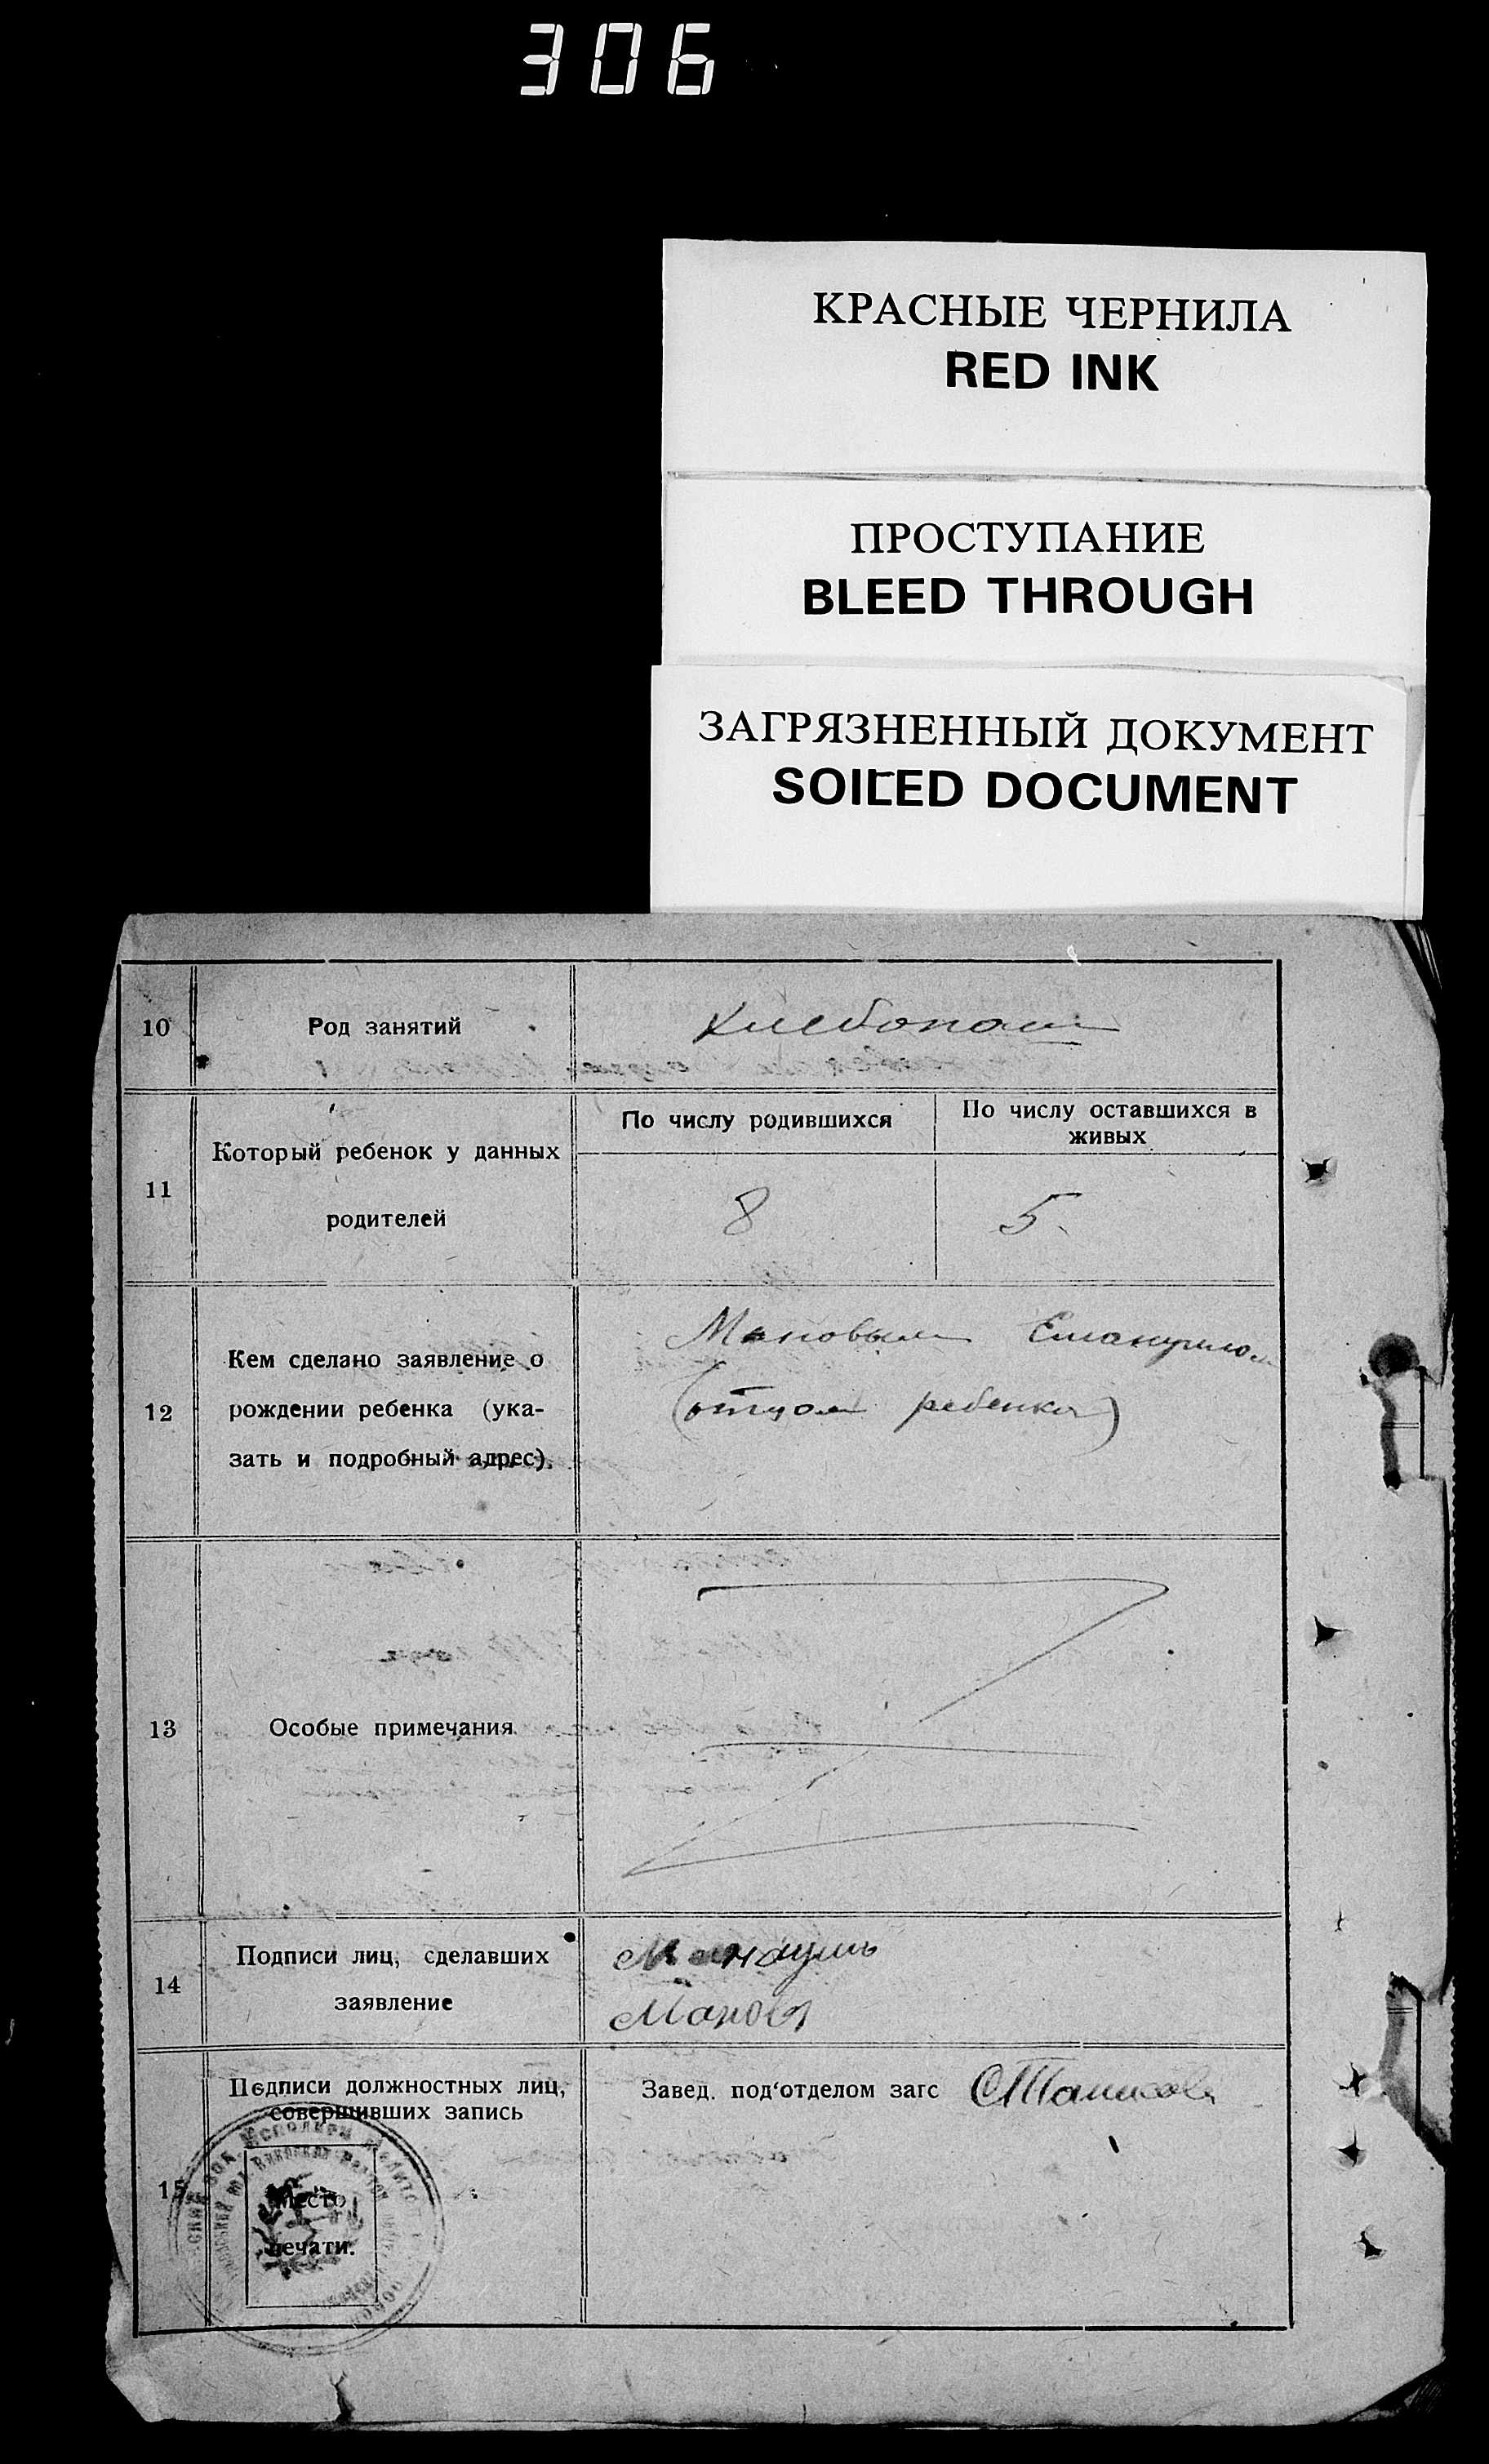 306
КРАСНЫЕ ЧЕРНИЛА
RED INK
ПРОСТУПАНИЕ
BLEED THROUGH
ЗАГРЯЗНЕННЫЙ ДОКУМЕНТ
SOILED DOCUMENT
10
Род занятий
Хлебопаш
11
Который ребенок у данных
родителей
По числу родившихся
По числу оставшихся в
живых
8
5
12
Кем сделано заявление о
рождении ребенка (ука-
зать и подробный адрес).
Мановым Емануилом
(отцом ребенка)
13
Особые примечания
14
Подписи лиц, сделавших
заявление
Манов
15
Подписи должностных лиц,
совершивших запись
Место
печати.
Завед. под'отделом загс